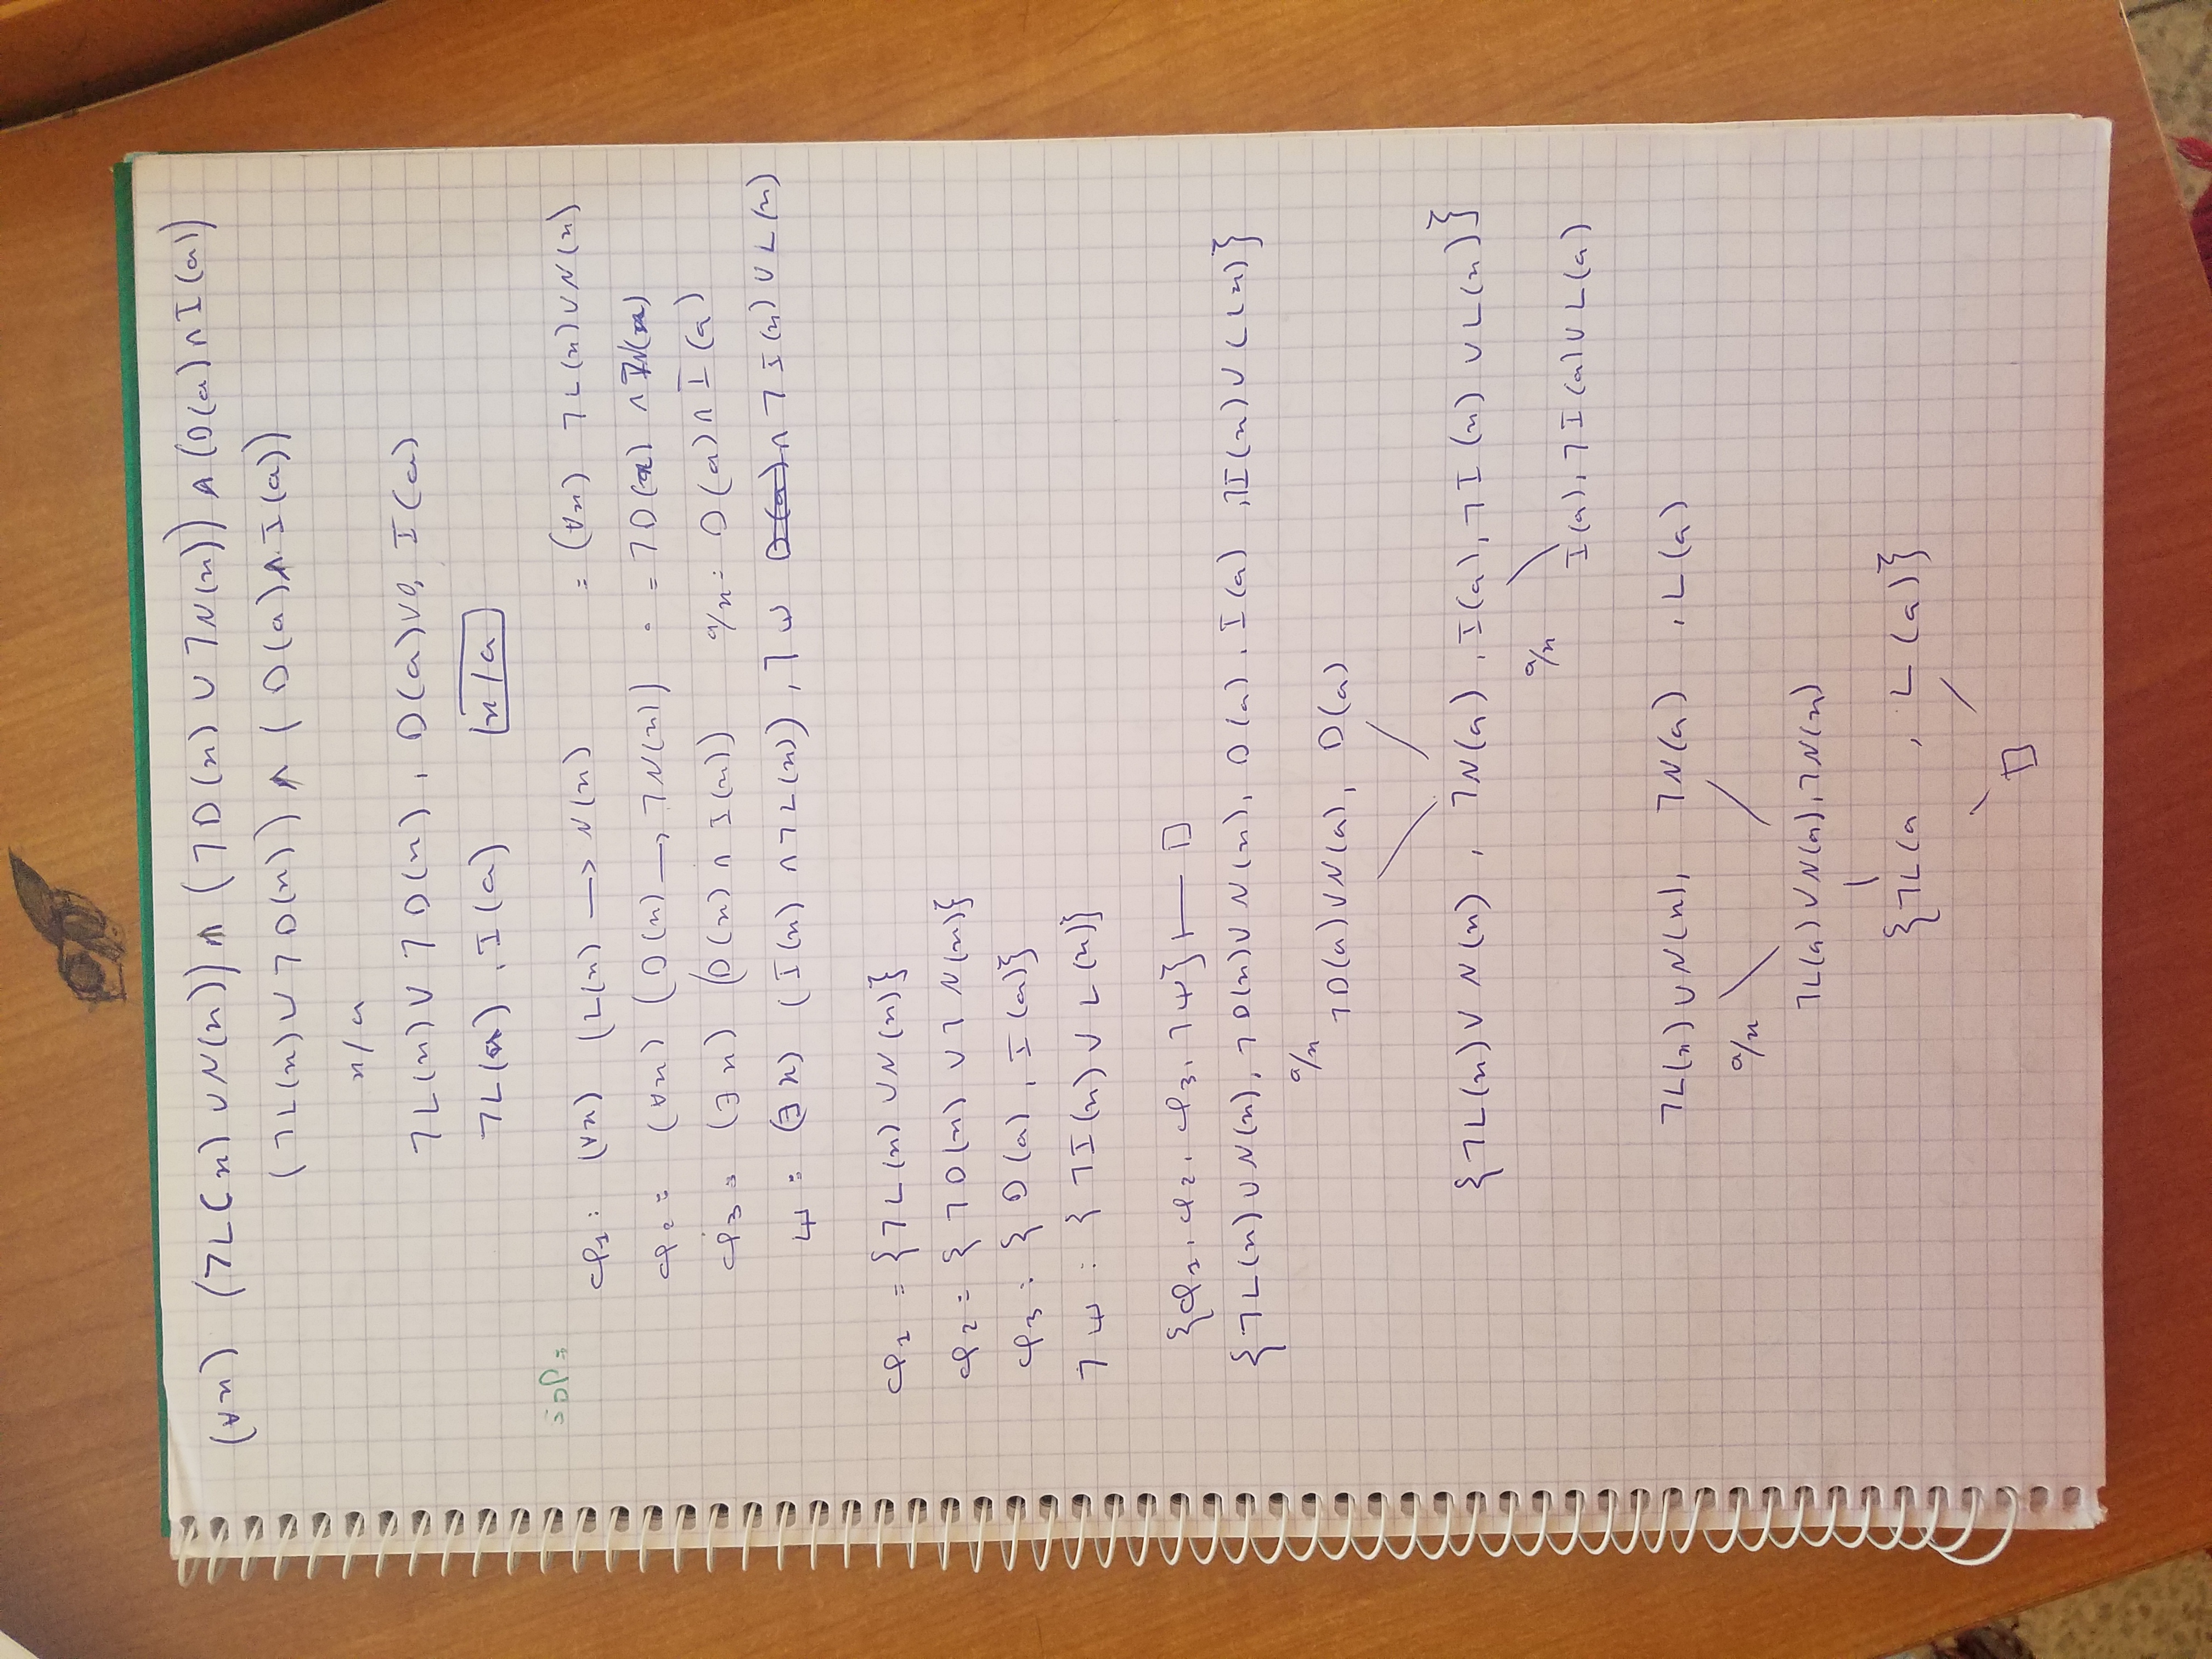 (∀x) (¬L(x) ∪ N(x)) ∧ (¬D(x) ∪ ¬N(x)) ∧ (D(a) ∩ I(a))
(¬L(x) ∪ ¬D(x)) ∧ (D(a) ∧ I(a))
x/a
¬L(x) ∪ ¬D(x), D(a) I(a)
¬L(x), I(a) [x/a]
φ1: (∀x) (L(x) → N(x) = (∀x) ¬L(x) ∪ N(x)
φ2 = (∀x) (D(x) → ¬N(x)) = ¬D(x) ∩ ¬N(x)
φ3 = (∃x) (D(x) ∩ I(x)) a/x: D(a) ∩ I(a)
ψ: (∃x) (I(x) ∩ ¬L(x)), ¬ψ ∩ ¬I(x) ∪ L(x)
φ1 = {¬L(x) ∪ N(x)}
φ2 = {¬D(x) ∪ ¬N(x)}
φ3: {D(a), I(a)}
¬ψ: {¬I(x) ∪ L(x)}
{φ1, φ2, φ3, ¬ψ} ⊢ □
{¬L(x) ∪ N(x), ¬D(x) ∪ N(x), D(a), I(a), ¬I(x) ∪ L(x)}
a/x
¬D(a) ∪ N(a), D(a)
{¬L(x) ∪ N(x), ¬N(a), I(a), ¬I(x) ∪ L(x)}
a/x
I(a), ¬I(a) ∪ L(a)
¬L(x) ∪ N(x), ¬N(a), L(a)
a/x
¬L(a) ∪ N(a), ¬N(x)
{¬L(a, L(a)}
□